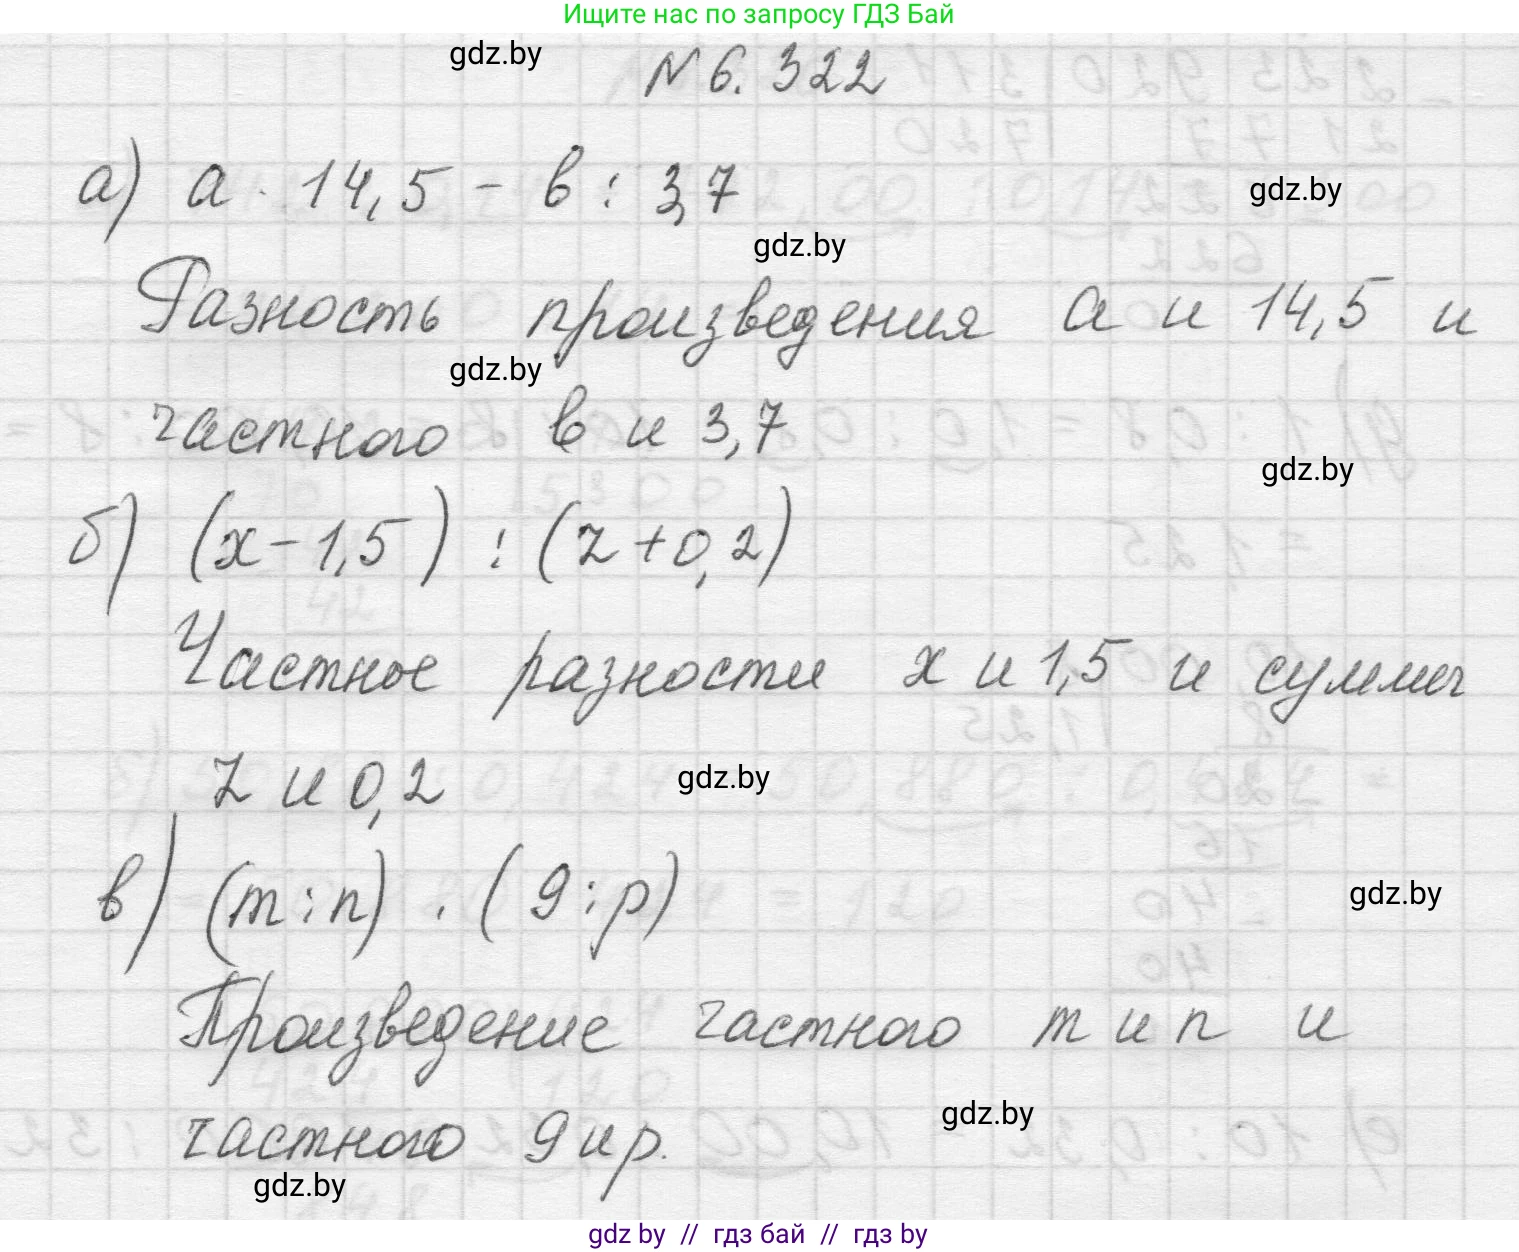 Ищите нас по запросу ГДЗ Бай
gdz.by
№ 6.322
а) a · 14,5 - в : 3,7
gdz.by
gdz.by
Разность произведения a и 14,5 и
gdz.by
частного в и 3,7
gdz.by
б) (x - 1,5) : (z + 0,2)
Частное разности x и 1,5 и суммы
z и 0,2
gdz.by
в) (m : n) · (9 : p)
gdz.by
Произведение частного m и n и
частного 9 и p.
gdz.by
gdz.by
gdz by // гдз бай // гдз by